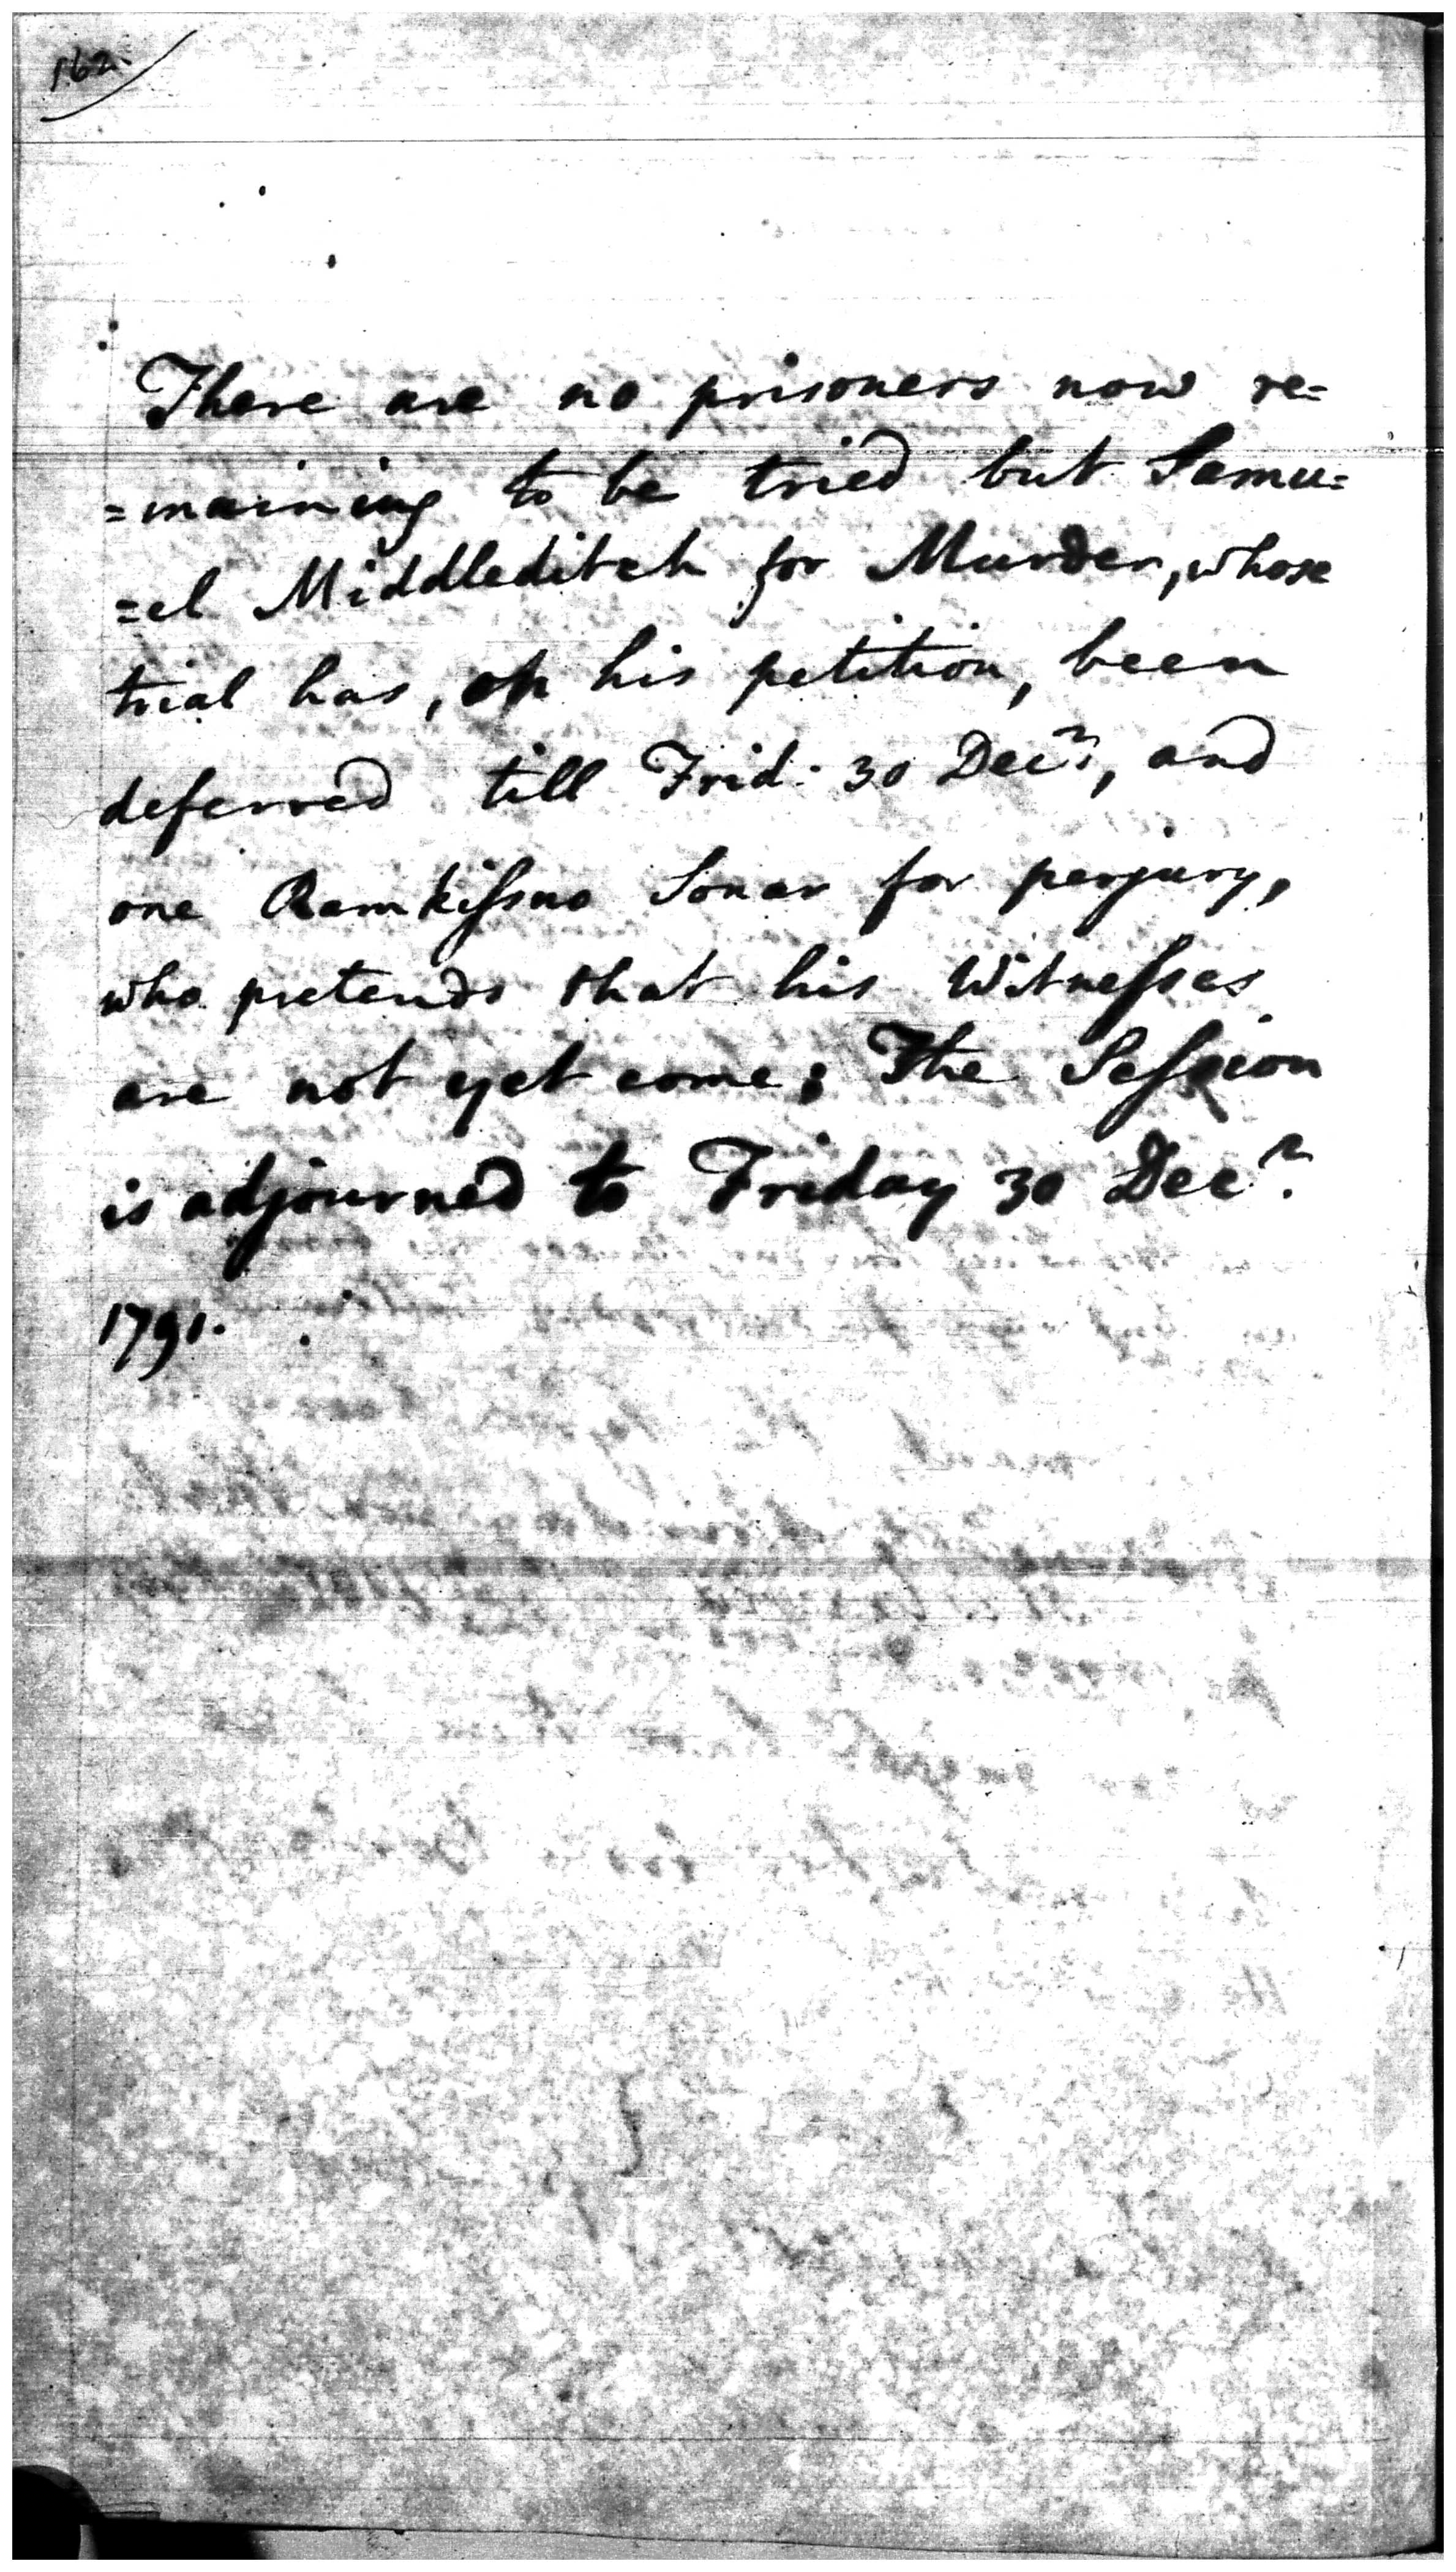 162.
There are no prisoners now re=
=maining to be tried but Samu=
=el Middleditch for Murder, whose
trial has, on his petition, been
deferred till Frid: 30 Decr, and
one Ramkiſsno Sonar for perjury,
who pretends that his Witneſses
are not yet come; The Seſsion
is adjourned to Friday 30 Decr.
1791.